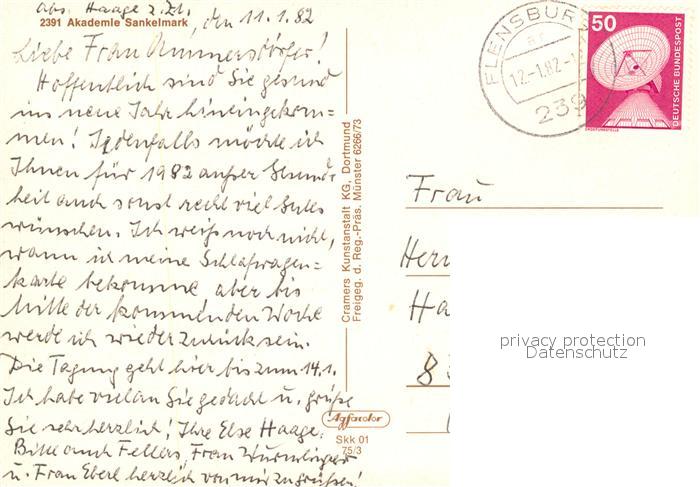 Abs. Haage z.Zt.
2391 Akademie Sankelmark, den 11.1.82
Liebe Frau Ammersdörfer!
Hoffentlich sind Sie gesund
ins neue Jahr hineingekom=
men! Jedenfalls möchte ich
Ihnen für 1982 außer Gesund=
heit auch sonst recht viel Gutes
wünschen. Ich weiß noch nicht,
wann ich meine Schlafwagen=
karte bekomme, aber bis
Mitte der kommenden Woche
werde ich wieder zurück sein.
Die Tagung geht hier bis zum 14.1.
Ich habe viel an Sie gedacht u. grüße
Sie sehr herzlich! Ihre Else Haage.
Bitte auch Fellers, Frau
u. Frau Eberl herzlich von mir zu grüßen!
Cramers Kunstanstalt KG, Dortmund
Freigeg. d. Reg.-Präs. Münster 6266/73
Agfacolor
Skk 01
75/3
FLENSBURG
12.-1.82.-1
239
50
DEUTSCHE BUNDESPOST
ERDEFUNKSTELLE
Frau
Her
Ha
8
privacy protection
Datenschutz